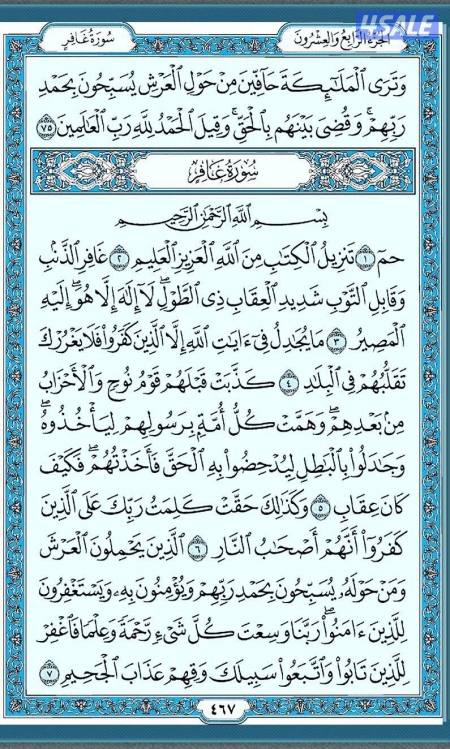 HSALE
الجزء الرابع والعشرون
سُورَةُ غَافِرٍ
وَتَرَى ٱلْمَلَٰٓئِكَةَ حَآفِّينَ مِنْ حَوْلِ ٱلْعَرْشِ يُسَبِّحُونَ بِحَمْدِ
رَبِّهِمْ ۖ وَقُضِيَ بَيْنَهُم بِٱلْحَقِّ ۖ وَقِيلَ ٱلْحَمْدُ لِلَّهِ رَبِّ ٱلْعَٰلَمِينَ ٧٥
سُورَةُ غَافِرٍ
بِسْمِ ٱللَّهِ ٱلرَّحْمَٰنِ ٱلرَّحِيمِ
حمٓ ١ تَنزِيلُ ٱلْكِتَٰبِ مِنَ ٱللَّهِ ٱلْعَزِيزِ ٱلْعَلِيمِ ٢ غَافِرِ ٱلذَّنۢبِ
وَقَابِلِ ٱلتَّوْبِ شَدِيدِ ٱلْعِقَابِ ذِى ٱلطَّوْلِ ۖ لَآ إِلَٰهَ إِلَّا هُوَ ۖ إِلَيْهِ
ٱلْمَصِيرُ ٣ مَا يُجَٰدِلُ فِىٓ ءَايَٰتِ ٱللَّهِ إِلَّا ٱلَّذِينَ كَفَرُوا۟ فَلَا يَغْرُرْكَ
تَقَلُّبُهُمْ فِى ٱلْبِلَٰدِ ٤ كَذَّبَتْ قَبْلَهُمْ قَوْمُ نُوحٍ وَٱلْأَحْزَابُ
مِنۢ بَعْدِهِمْ ۖ وَهَمَّتْ كُلُّ أُمَّةٍۭ بِرَسُولِهِمْ لِيَأْخُذُوهُ ۖ
وَجَٰدَلُوا۟ بِٱلْبَٰطِلِ لِيُدْحِضُوا۟ بِهِ ٱلْحَقَّ فَأَخَذْتُهُمْ ۖ فَكَيْفَ
كَانَ عِقَابِ ٥ وَكَذَٰلِكَ حَقَّتْ كَلِمَتُ رَبِّكَ عَلَى ٱلَّذِينَ
كَفَرُوٓا۟ أَنَّهُمْ أَصْحَٰبُ ٱلنَّارِ ٦ ٱلَّذِينَ يَحْمِلُونَ ٱلْعَرْشَ
وَمَنْ حَوْلَهُۥ يُسَبِّحُونَ بِحَمْدِ رَبِّهِمْ وَيُؤْمِنُونَ بِهِۦ وَيَسْتَغْفِرُونَ
لِلَّذِينَ ءَامَنُوا۟ رَبَّنَا وَسِعْتَ كُلَّ شَىْءٍ رَّحْمَةً وَعِلْمًا فَٱغْفِرْ
لِلَّذِينَ تَابُوا۟ وَٱتَّبَعُوا۟ سَبِيلَكَ وَقِهِمْ عَذَابَ ٱلْجَحِيمِ ٧
٤٦٧